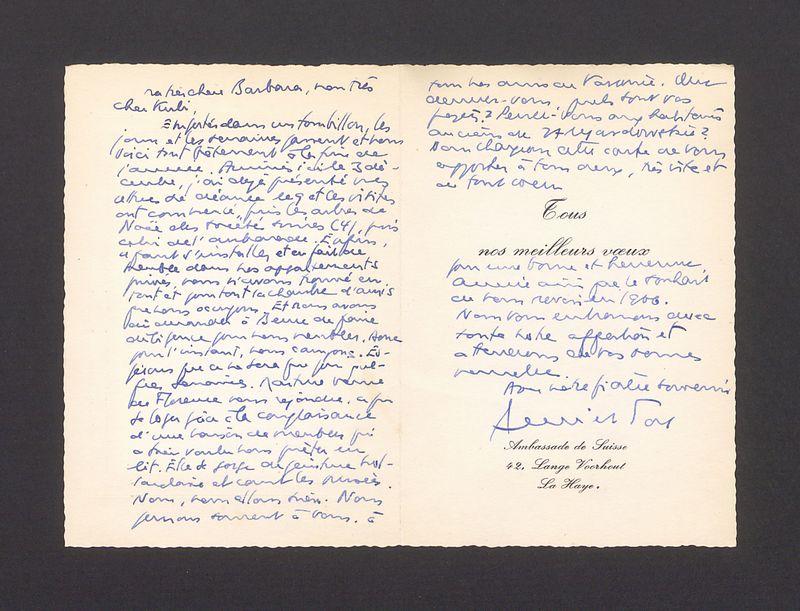 Ma très chère Barbara, mon très
cher Kubi,
Emportés dans un tourbillon, les
jours et les semaines passent et nous
voici tout bêtement à la fin de
l'année. Arrivés ici le 3 dé-
cembre, j'ai déjà présenté mes
lettres de créance le 9 et les visites
ont commencé, puis les arbres de
Noël des sociétés suisses (4), puis
celui de l'ambassade. Enfin,
il faut s'installer et en fait de
meubles dans nos appartements
privés, nous n'avons trouvé en
tout et pour tout la chambre d'amis
que nous occupons. Et nous avons
dû demander à Berne de faire
diligence pour nous meubler. Donc
pour l'instant, nous campons. Es-
pérons que ce ne sera que pour quel-
ques semaines. Martine venue
de Florence nous rejoindre, a pu
se loger grâce à la complaisance
d'une maison de meubles qui
a bien voulu nous prêter un
lit. Elle se gorge de peinture hol-
landaise et court les musées.
Nous, nous allons bien. Nous
pensons souvent à vous, à
tous nos amis de Varsovie. Que
devenez-vous, quels sont vos
projets? Pensez-vous aux habitants
anciens de 27 ?
Nous chargeons cette carte de vous
apporter à tous deux, très vite et
de tout coeur
Tous
nos meilleurs vœux
pour une bonne et heureuse
année ainsi que le souhait
de vous revoir en 1966.
Nous vous embrassons avec
toute notre affection et
attendons de vos bonnes
nouvelles.
Avec notre fidèle souvenir
Ambassade de Suisse
42, Lange Voorhout
La Haye.